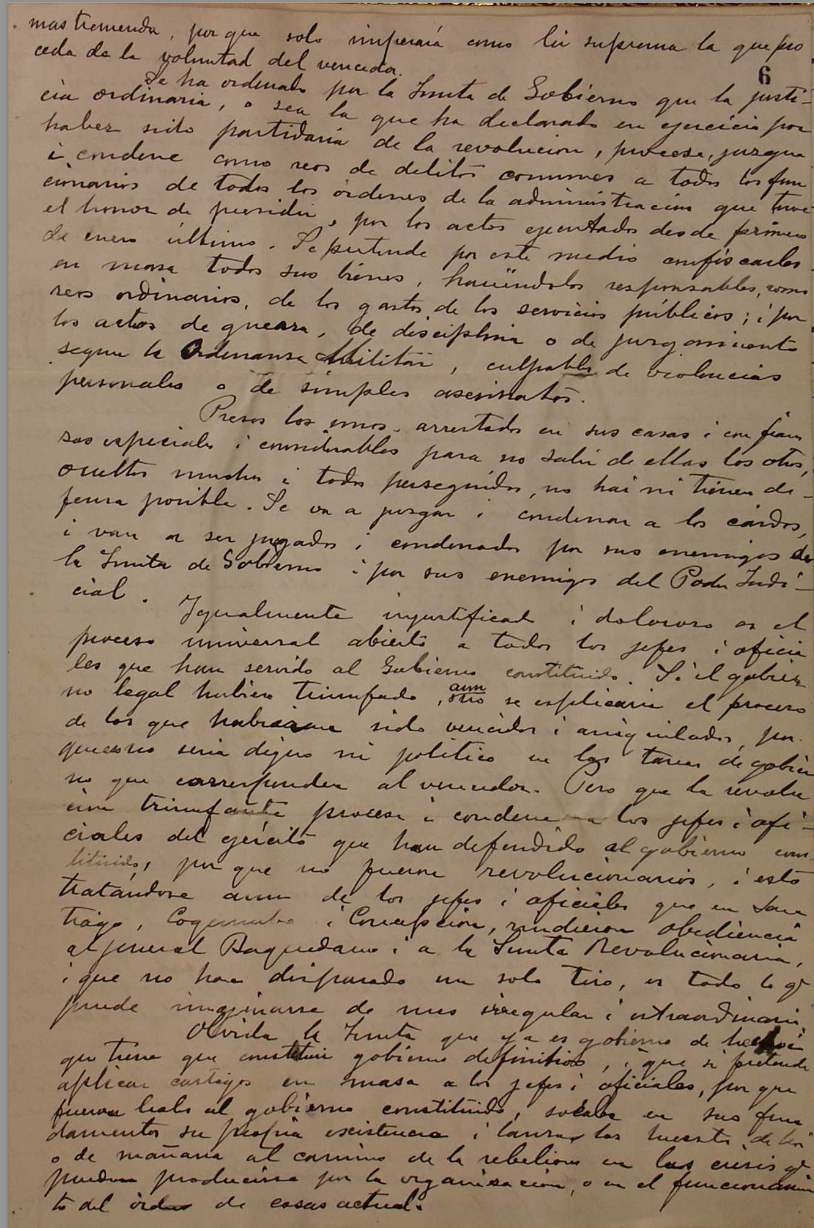 mas tremenda, por que solo imperaria como lei suprema la que pro
ceda de la voluntad del vencedor.
6
Se ha ordenado por la Junta de Gobierno que la justi-
cia ordinaria, o sea la que ha declarado en ejercicio por
haber sido partidaria de la revolucion, procese, juzgue
i condene como reos de delitos comunes a todos los fun
cionarios de todos los órdenes de la administracion que tuve
el honor de presidir, por los actos ejecutados desde primero
de enero último. Se pretende por este medio confiscarles
en masa todos sus bienes, haciéndolos responsables, como
reos ordinarios, de los gastos de los servicios públicos; i por
los actos de guerra, de disciplina o de juzgamiento
segun la Ordenanza Militar, culpables de violencias
personales o de simples asesinatos.
Presos los unos, arrestados en sus casas i con fian
zas especiales i considerables para no salir de ellas los otros,
ocultos muchos i todos perseguidos, no hai ni tienen de-
fensa posible. Se va a juzgar i condenar a los caidos,
i van a ser juzgados i condenados por sus enemigos de
la Junta de Gobierno i por sus enemigos del Poder Judi-
cial.
Igualmente injustificado i doloroso es el
proceso universal abierto a todos los jefes i oficia
les que han servido al Gobierno constituido. Si el gobier
no legal hubiera triunfado, aun no se esplicaria el proceso
de los que habrian sido vencidos i aniquilados, por-
que eso no seria digno ni politico en las tareas de gobier
no que corresponden al vencedor. Pero que la revolu
cion triunfante procese i condene a los jefes i ofi-
ciales del ejército que han defendido al gobierno cons
tituido, por que no fueron revolucionarios, i esto
tratándose aun de los jefes i oficiales que en San
tiago, Coquimbo i Concepcion, rindieron obediencia
al jeneral Baquedano i a la Junta Revolucionaria,
i que no han disparado un solo tiro, es todo lo qe
puede imajinarse de mas irregular i extraordinario.
Olvida la Junta que ya es gobierno de hecho i
que tiene que constituir gobierno definitivo, i que si pretende
aplicar castigos en masa a los jefes i oficiales, por que
fueron leales al gobierno constituido, socaba en sus fun
damentos su propia existencia i lanza las huestes de hoi
o de mañana al camino de la rebelion en las crisis qe
puedan producirse por la organizacion, o en el funcionamien
to del órden de cosas actual.